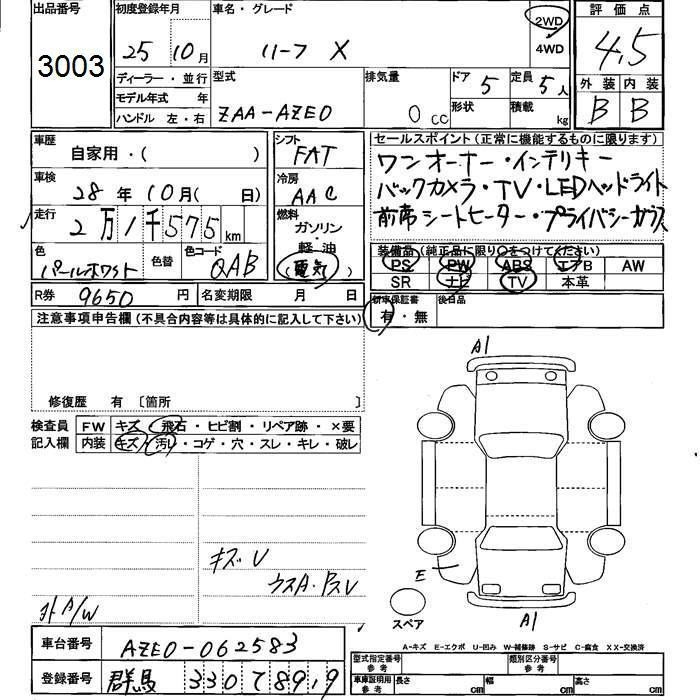 出品番号 初度登録年月 車名・グレード 2WD 評価点
3003 25 年 10 月 リーフ X 4WD 4.5
ディーラー・並行 型式 排気量 ドア 5 定員 5 人 外装 内装
モデル年式 年 ZAA-AZE0 0 cc 形状 積載 kg B B
ハンドル 左・右
車歴 シフト セールスポイント(正常に機能するものに限ります)
自家用・( ) FAT ワンオーナー・インテリキー
車検 冷房 バックカメラ・TV・LEDヘッドライト
28 年 10 月( 日) AAC 前席シートヒーター・プライバシーガラス
走行 燃料
2 万 1 千 575 km ガソリン・
色 色替 色コード 軽油 装備品(純正品に限り○をつけて下さい)
パールホワイト QAB (電気) PS PW ABS エアB AW
SR ナビ TV 本革
R券 9650 円 名変期限 月 日 新車保証書 後日品
有・無
注意事項申告欄(不具合内容等は具体的に記入して下さい)
A1
修復歴 有 〔箇所 〕
検査員 FW キズ・飛石・ヒビ割・リペア跡・×要
記入欄 内装 キズ・汚れ・コゲ・穴・スレ・キレ・破レ
キズU
E
ウスA・PスU
外 A/W スペア A1
車台番号 AZE0-062583 A-キズ E-エクボ U-凹み W-補修跡 S-サビ C-腐食 XX-交換済
型式指定番号 参考 類別区分番号 参考
登録番号 群馬 330 て 8919 車庫証明用 参考 長さ cm 幅 cm 高さ cm